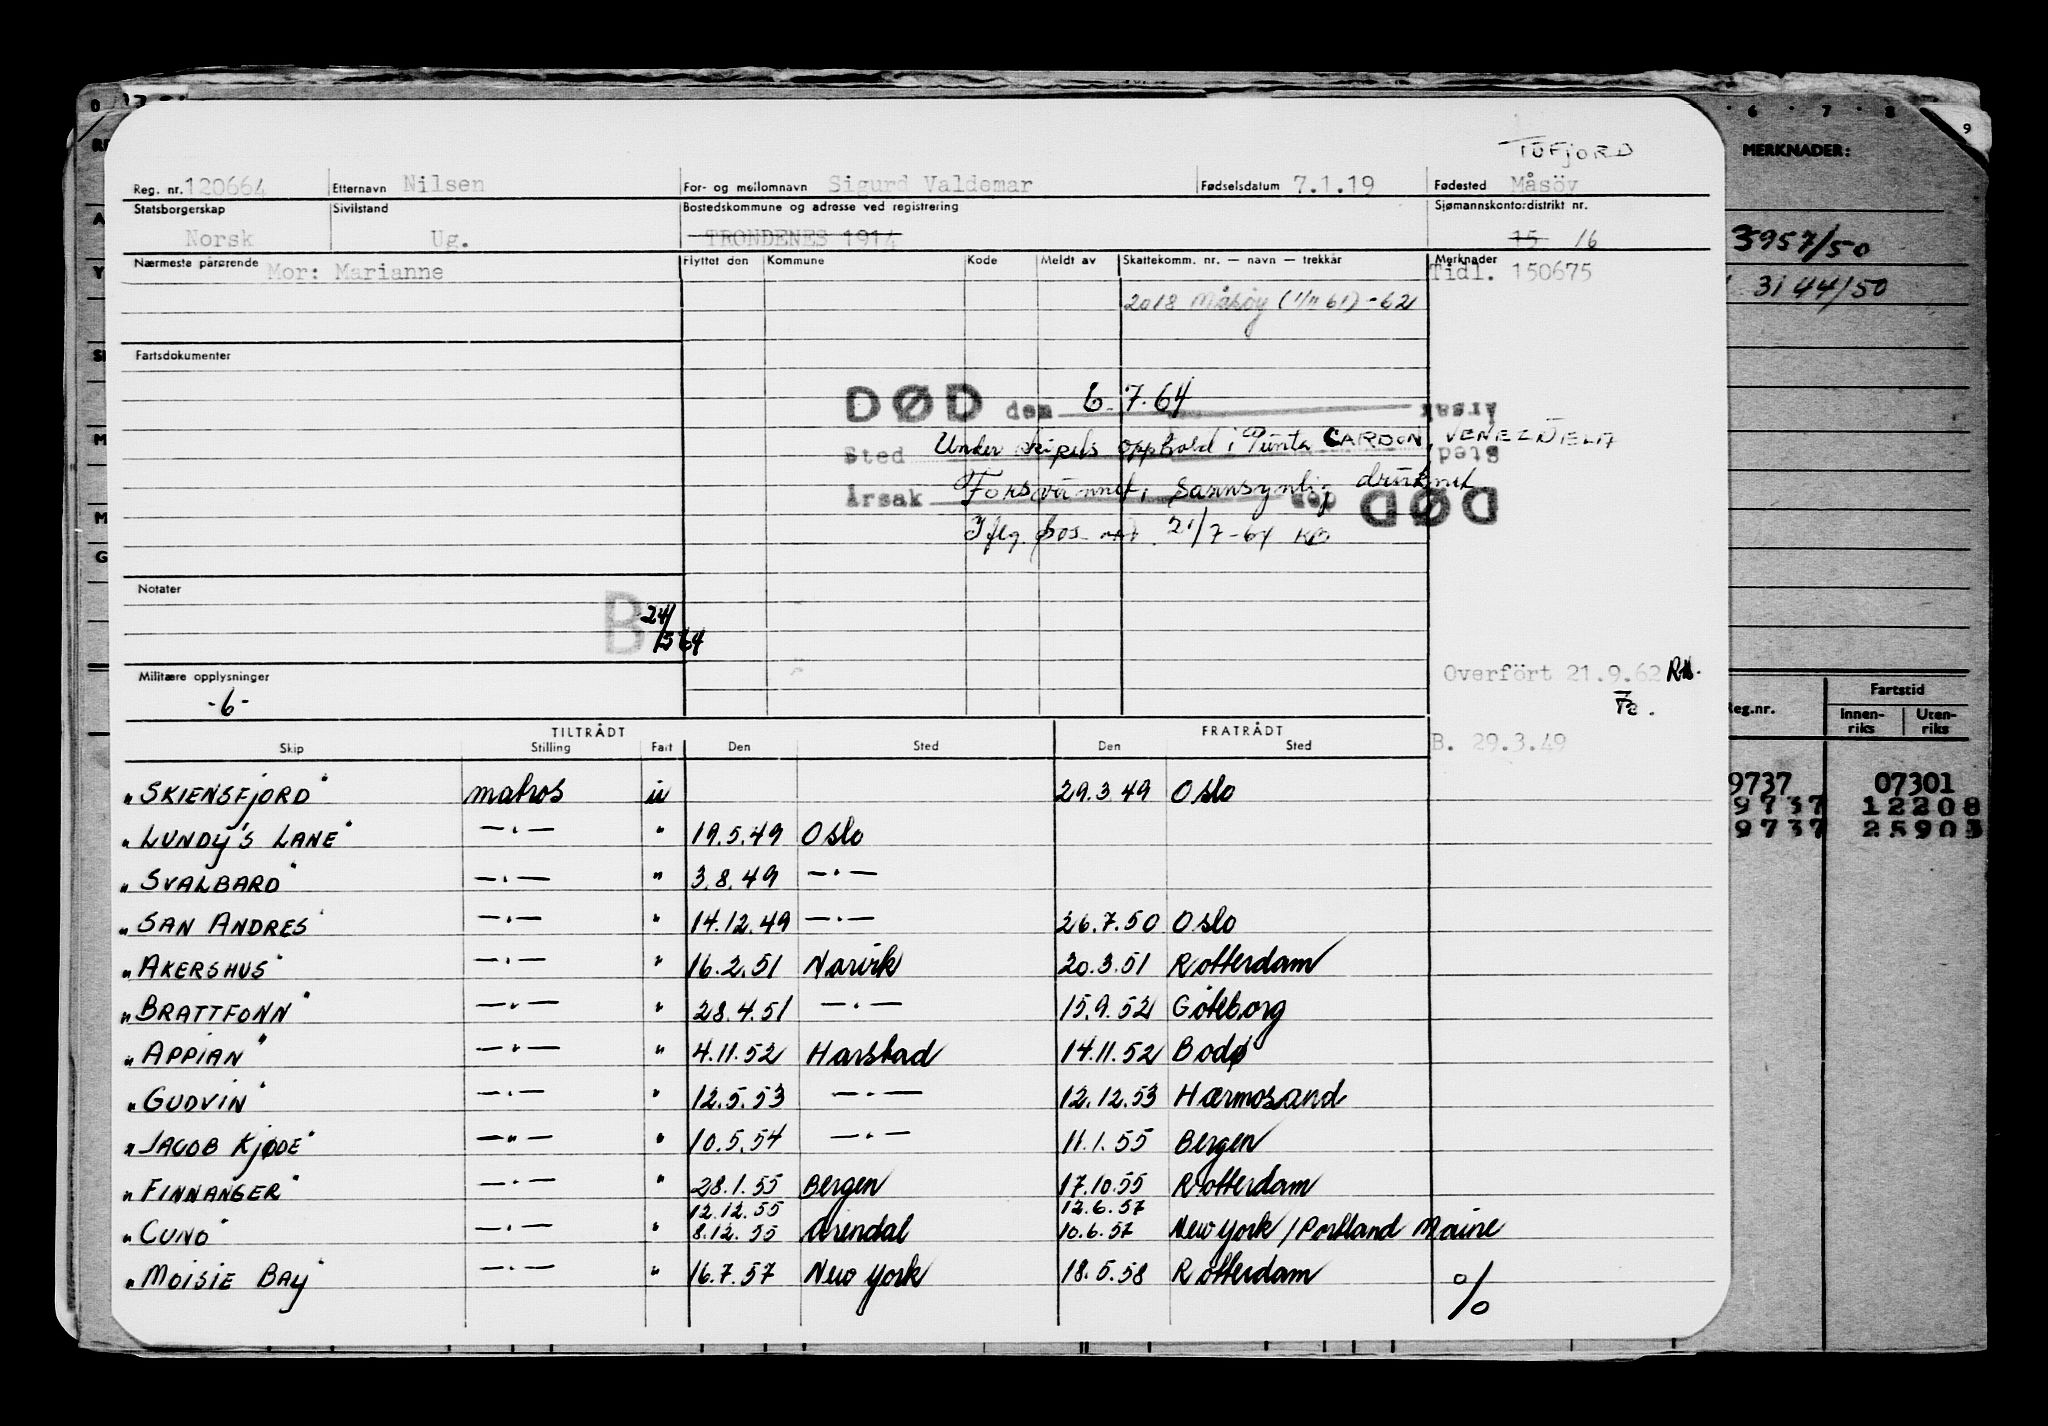 TUFJORD
Reg. nr. 120664 Etternavn Nilsen For- og mellomnavn Sigurd Valdemar Fødselsdatum 7.1.19 Fødested Måsöy
Statsborgerskap Sivilstand Bostedskommune og adresse ved registrering Sjømannskontordistrikt nr.
Norsk Ug. TRONDENES 1914 15 16
Nærmeste pårørende Mor: Marianne Flyttet den Kommune Kode Meldt av Skattekomm. nr. — navn — trekkår Merknader
Tidl. 150675
2018 Måsøy (1/11 61) - 62
Fartsdokumenter
DØD den 6.7.64 Årsak
Sted Under skipets opphold i Punta CARDON, VENEZUELA Sted
Årsak Forsvunnet, sannsynlig druknet den DØD
Iflg. 21/7-64
Notater
B 24/
5 64
Militære opplysninger
-6-
Overfört 21.9.62
B. 29.3.49
TILTRÅDT FRATRÅDT
Skip Stilling Fart Den Sted Den Sted
"SKIENSFJORD" matros u 29.3.49 Oslo
"LUNDY'S LANE" —"— " 19.5.49 Oslo
"SVALBARD" —"— " 3.8.49 —"—
"SAN ANDRES" —"— " 14.12.49 —"— 26.7.50 Oslo
"AKERSHUS" —"— " 16.2.51 Narvik 20.3.51 Rotterdam
"BRATTFONN" —"— " 28.4.51 —"— 15.9.52 Göteborg
"APPIAN" —"— " 4.11.52 Harstad 14.11.52 Bodø
"GUDVIN" —"— " 12.5.53 —"— 12.12.53 Hærnosand
"JACOB KJØDE" —"— " 10.5.54 —"— 11.1.55 Bergen
"FINNANGER" —"— " 28.1.55 Bergen 17.10.55 Rotterdam
12.12.55 12.6.57
"CUNO" —"— " 8.12.55 Arendal 10.6.57 New York / Portland Maine
"MOISIE BAY" —"— " 16.7.57 New York 18.5.58 Rotterdam
%
6 7 8 9
MERKNADER:
3957/50
3144/50
Reg.nr. Fartstid
Innen-riks Uten-riks
9737 07301
9737 12208
9737 25905